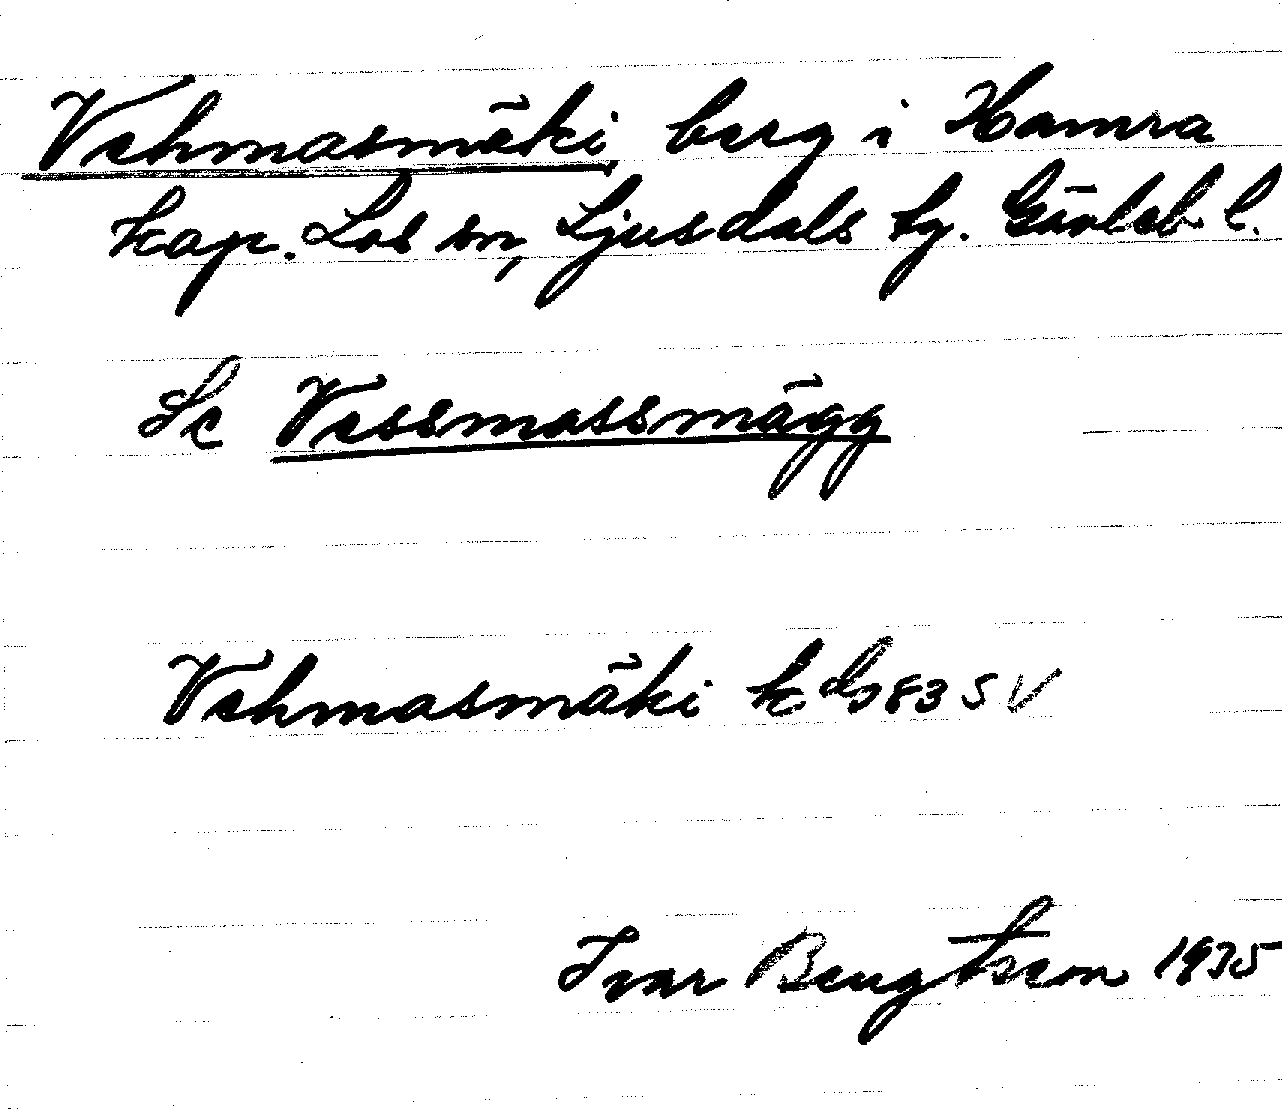 Vehmasmäki berg i Hamra
kap. Los sn, Ljusdals tg. Gävleb. l.
Se Vessmassmägg
Vehmasmäki k bl 83 SV
Ivar Bengtsson 1935